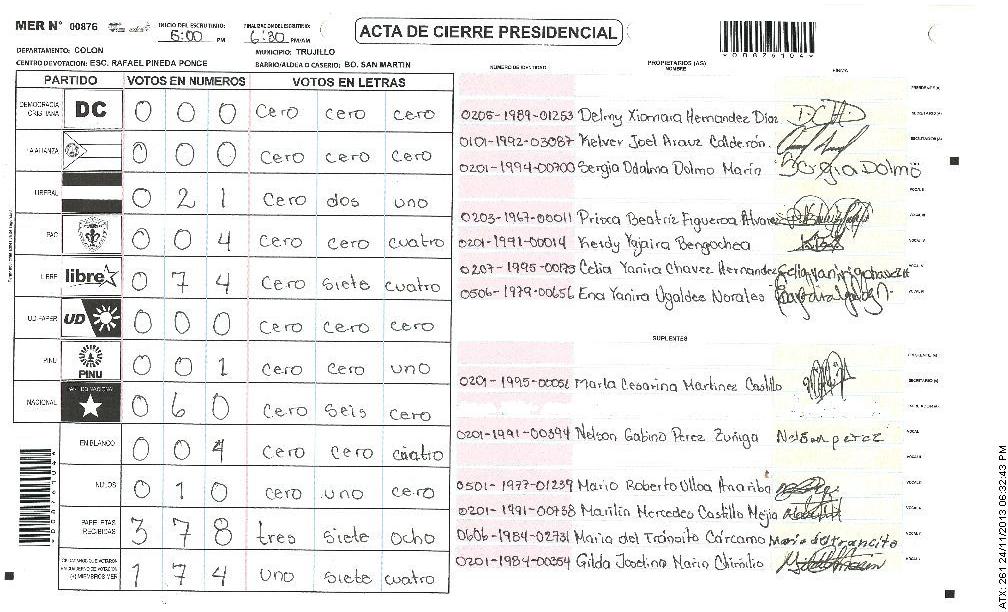 MER Nº 00876
INICIO DEL ESCRUTINIO: 5:00 PM
FINALIZACION DEL ESCRUTINIO: 6:30 PM/AM
ACTA DE CIERRE PRESIDENCIAL
DEPARTAMENTO: COLON
MUNICIPIO: TRUJILLO
CENTRO DE VOTACION: ESC. RAFAEL PINEDA PONCE
BARRIO/ALDEA O CASERIO: BO. SAN MARTIN
PARTIDO VOTOS EN NUMEROS VOTOS EN LETRAS
DEMOCRACIA CRISTIANA DC 0 0 0 cero cero cero
LA ALIANZA 0 0 0 cero cero cero
LIBERAL 0 2 1 cero dos uno
PAC 0 0 4 cero cero cuatro
LIBRE libre 0 7 4 cero siete cuatro
UD FAPER UD 0 0 0 cero cero cero
PINU PINU 0 0 1 cero cero uno
NACIONAL 0 6 0 cero seis cero
EN BLANCO 0 0 4 cero cero cuatro
NULOS 0 1 0 cero uno cero
PAPELETAS RECIBIDAS 3 7 8 tres siete ocho
(+) MIEMBROS MER 1 7 4 uno siete cuatro
NUMERO DE IDENTIDAD
PROPIETARIOS (AS)
NOMBRE
FIRMA
0205-1989-01253 Delmy Xiomara Hernandez Díaz
0101-1992-03087 Kelver Joel Arauz Calderón.
0201-1994-00700 Sergia Odalma Dolmo Marin Sergia Dolmo
0203-1967-00011 Prixca Beatriz Figueroa Alvarez
0201-1991-00014 Kerdy Yajaira Bengochea
0207-1995-00175 Celia Yanira Chavez Hernandez
0506-1979-00656 Ena Yanira Ugaldez Norales
SUPLENTES
0201-1995-00052 Marla Cesarina Martinez Castillo
0201-1991-00394 Nelson Gabino Perez Zuñiga Nelson perez
0501-1977-01239 Mario Roberto Ulloa Anariba
0201-1991-00738 Marilin Mercedes Castillo Mejia
0606-1984-02731 Maria del Tránsito Cárcamo Maria del trancito
0201-1984-00354 Gilda Joselina Marin Chimilio
ATX: 261 24/11/2013 06:32:43 PM